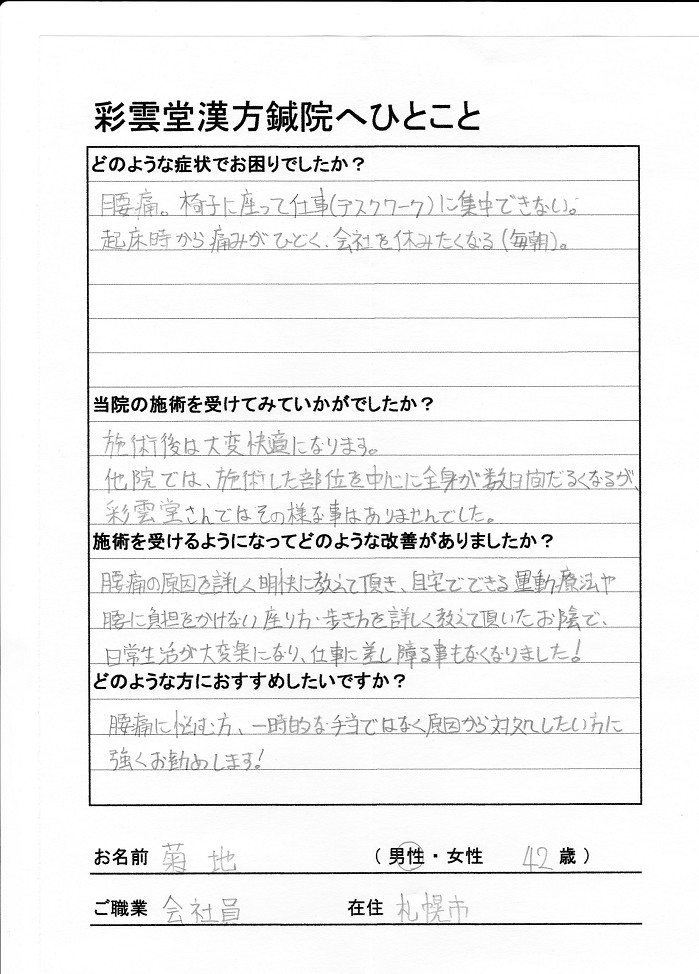 彩雲堂漢方鍼院へひとこと
どのような症状でお困りでしたか？
腰痛。椅子に座って仕事(デスクワーク)に集中できない。
起床時から痛みがひどく、会社を休みたくなる(毎朝)。
当院の施術を受けてみていかがでしたか？
施術後は大変快適になります。
他院では、施術した部位を中心に全身が数日間だるくなるが、
彩雲堂さんではその様な事はありませんでした。
施術を受けるようになってどのような改善がありましたか？
腰痛の原因を詳しく明快に教えて頂き、自宅でできる運動療法や
腰に負担をかけない座り方・歩き方を詳しく教えて頂いたお陰で、
日常生活が大変楽になり、仕事に差し障る事もなくなりました!
どのような方におすすめしたいですか？
腰痛に悩む方、一時的な手当ではなく原因から対処したい方に
強くお勧めします!
お名前 菊地 （男性・女性 42歳）
ご職業 会社員 在住 札幌市